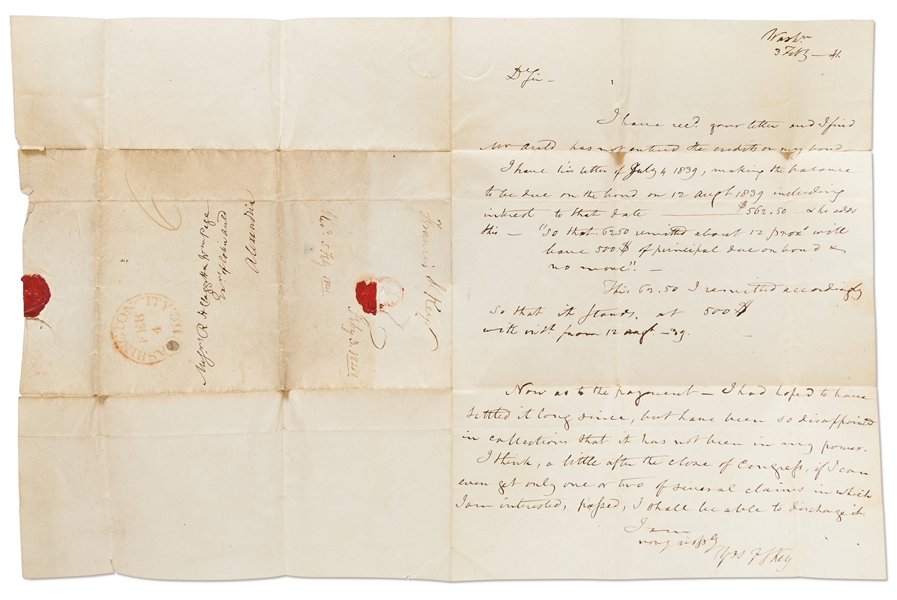 Washn
3 Feb – 41
Dr Sir –
I have recd. your letter and I find
Mr Auld has not entered the credits on my bond
I have his letter of July 4 1839, making the balance
to be due on the bond on 12 augt 1839 including
interest to that date $562.50 – & he adds
this – "So that 6250 remitted about 12 proxo will
leave 500 $ of principal due on bond &
no more". –
This 62.50 I remitted accordingly
So that it stands, at 500 $
with intst from 12 augt – 39.
Now as to the payment – I had hoped to have
settled it long since, but have been so disappointed
in collections that it has not been in my power.
I think, a little after the close of Congress, if I can
even get only one or two of several claims in which
I am interested, passed, I shall be able to discharge it
I am
very respy
Yrs F S Key
Francis S Key
Feby 3. 1841
Messrs & Wm Page
Alexandria
WASHINGTON CITY
FEB
4